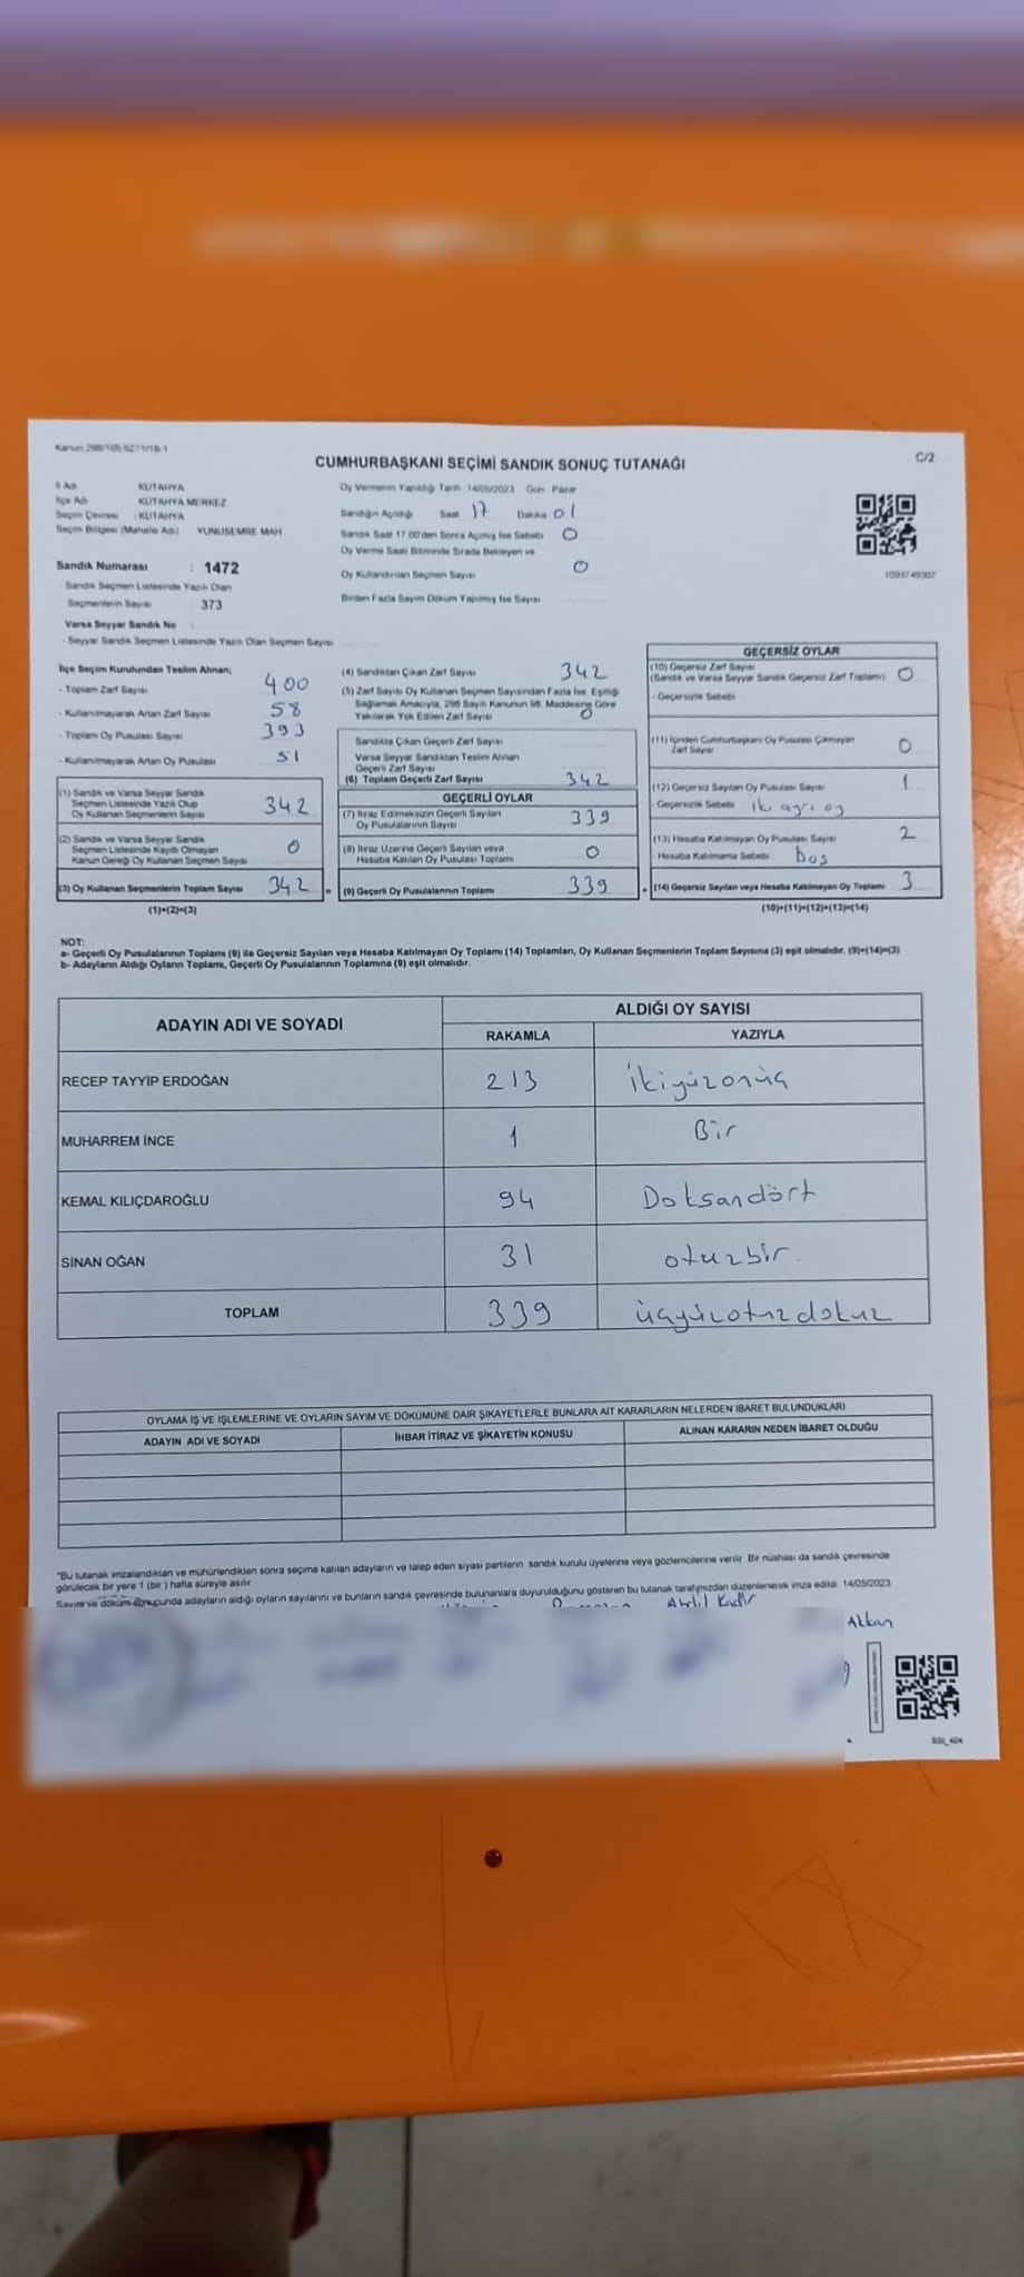 Kanun:298/105;6271/18-1
CUMHURBAŞKANI SEÇİMİ SANDIK SONUÇ TUTANAĞI
C/2
İl Adı KÜTAHYA
İlçe Adı KÜTAHYA MERKEZ
Seçim Çevresi : KÜTAHYA
Seçim Bölgesi (Mahalle Adı) YUNUSEMRE MAH
Sandık Numarası : 1472
Sandık Seçmen Listesinde Yazılı Olan
Seçmenlerin Sayısı 373
Varsa Seyyar Sandık No
- Seyyar Sandık Seçmen Listesinde Yazılı Olan Seçmen Sayısı
Oy Vermenin Yapıldığı Tarih 14/05/2023 Gün Pazar
Sandığın Açıldığı Saat 17 Dakika 01
Sandık Saat 17.00'den Sonra Açılmış İse Sebebi 0
Oy Verme Saati Bitiminde Sırada Bekleyen ve
Oy Kullandırılan Seçmen Sayısı 0
Birden Fazla Sayım Döküm Yapılmış İse Sayısı
1093749307
İlçe Seçim Kurulundan Teslim Alınan;
- Toplam Zarf Sayısı 400
- Kullanılmayarak Artan Zarf Sayısı 58
- Toplam Oy Pusulası Sayısı 393
- Kullanılmayarak Artan Oy Pusulası 51
(1) Sandık ve Varsa Seyyar Sandık
Seçmen Listesinde Yazılı Olup
Oy Kullanan Seçmenlerin Sayısı 342
(2) Sandık ve Varsa Seyyar Sandık
Seçmen Listesinde Kayıtlı Olmayan
Kanun Gereği Oy Kullanan Seçmen Sayısı 0
(3) Oy Kullanan Seçmenlerin Toplam Sayısı 342
(1)+(2)=(3)
(4) Sandıktan Çıkan Zarf Sayısı 342
(5) Zarf Sayısı Oy Kullanan Seçmen Sayısından Fazla İse, Eşitliği
Sağlamak Amacıyla, 298 Sayılı Kanunun 98. Maddesine Göre
Yakılarak Yok Edilen Zarf Sayısı 0
Sandıkta Çıkan Geçerli Zarf Sayısı
Varsa Seyyar Sandıktan Teslim Alınan
Geçerli Zarf Sayısı
(6) Toplam Geçerli Zarf Sayısı 342
GEÇERLİ OYLAR
(7) İtiraz Edilmeksizin Geçerli Sayılan
Oy Pusulalarının Sayısı 339
(8) İtiraz Üzerine Geçerli Sayılan veya
Hesaba Katılan Oy Pusulası Toplamı 0
= (9) Geçerli Oy Pusulalarının Toplamı 339
GEÇERSİZ OYLAR
(10) Geçersiz Zarf Sayısı
(Sandık ve Varsa Seyyar Sandık Geçersiz Zarf Toplamı) 0
- Geçersizlik Sebebi
(11) İçinden Cumhurbaşkanı Oy Pusulası Çıkmayan
Zarf Sayısı 0
(12) Geçersiz Sayılan Oy Pusulası Sayısı 1
- Geçersizlik Sebebi iki ayrı oy
(13) Hesaba Katılmayan Oy Pusulası Sayısı 2
Hesaba Katılmama Sebebi Boş
+ (14) Geçersiz Sayılan veya Hesaba Katılmayan Oy Toplamı 3
(10)+(11)+(12)+(13)=(14)
NOT:
a- Geçerli Oy Pusulalarının Toplamı (9) ile Geçersiz Sayılan veya Hesaba Katılmayan Oy Toplamı (14) Toplamları, Oy Kullanan Seçmenlerin Toplam Sayısına (3) eşit olmalıdır. (9)+(14)=(3)
b- Adayların Aldığı Oyların Toplamı, Geçerli Oy Pusulalarının Toplamına (9) eşit olmalıdır.
ADAYIN ADI VE SOYADI ALDIĞI OY SAYISI
RAKAMLA YAZIYLA
RECEP TAYYİP ERDOĞAN 213 ikiyüzonüç
MUHARREM İNCE 1 Bir
KEMAL KILIÇDAROĞLU 94 Doksandört
SİNAN OĞAN 31 otuzbir.
TOPLAM 339 üçyüzotuzdokuz
OYLAMA İŞ VE İŞLEMLERİNE VE OYLARIN SAYIM VE DÖKÜMÜNE DAİR ŞİKAYETLERLE BUNLARA AİT KARARLARIN NELERDEN İBARET BULUNDUKLARI
ADAYIN ADI VE SOYADI İHBAR İTİRAZ VE ŞİKAYETİN KONUSU ALINAN KARARIN NEDEN İBARET OLDUĞU
*Bu tutanak imzalandıktan ve mühürlendikten sonra seçime katılan adayların ve talep eden siyasi partilerin sandık kurulu üyelerine veya gözlemcilerine verilir. Bir nüshası da sandık çevresinde
görülecek bir yere 1 (bir) hafta süreyle asılır
Sayım ve döküm sonucunda adayların aldığı oyların sayılarını ve bunların sandık çevresinde bulunanlara duyurulduğunu gösteren bu tutanak tarafımızdan düzenlenerek imza edildi. 14/05/2023
Abdil Kadir
Akkan